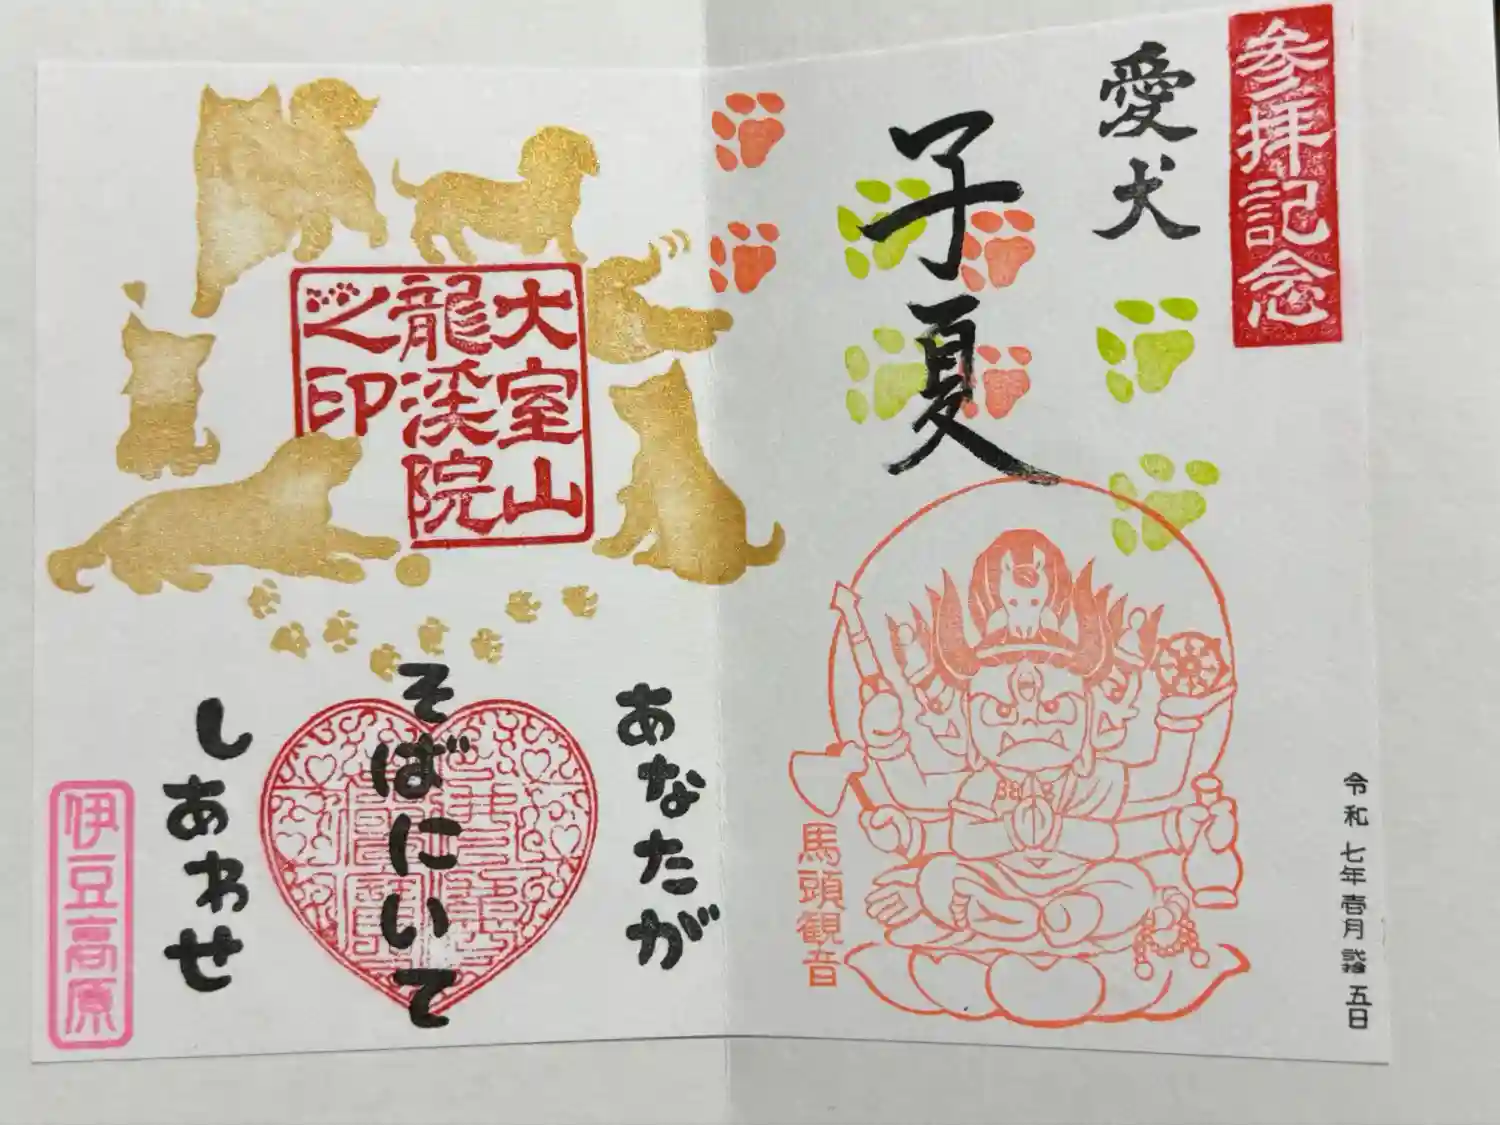 参拝記念
愛犬
子夏
馬頭観音
令和七年壱月弐拾五日
大室山
龍渓院
之印
あなたが
そばにいて
しあわせ
伊豆高原